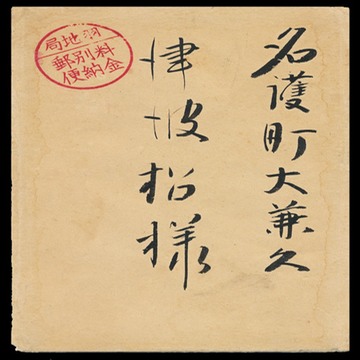 名護町大兼久
津波松様
羽地局
料金別納郵便